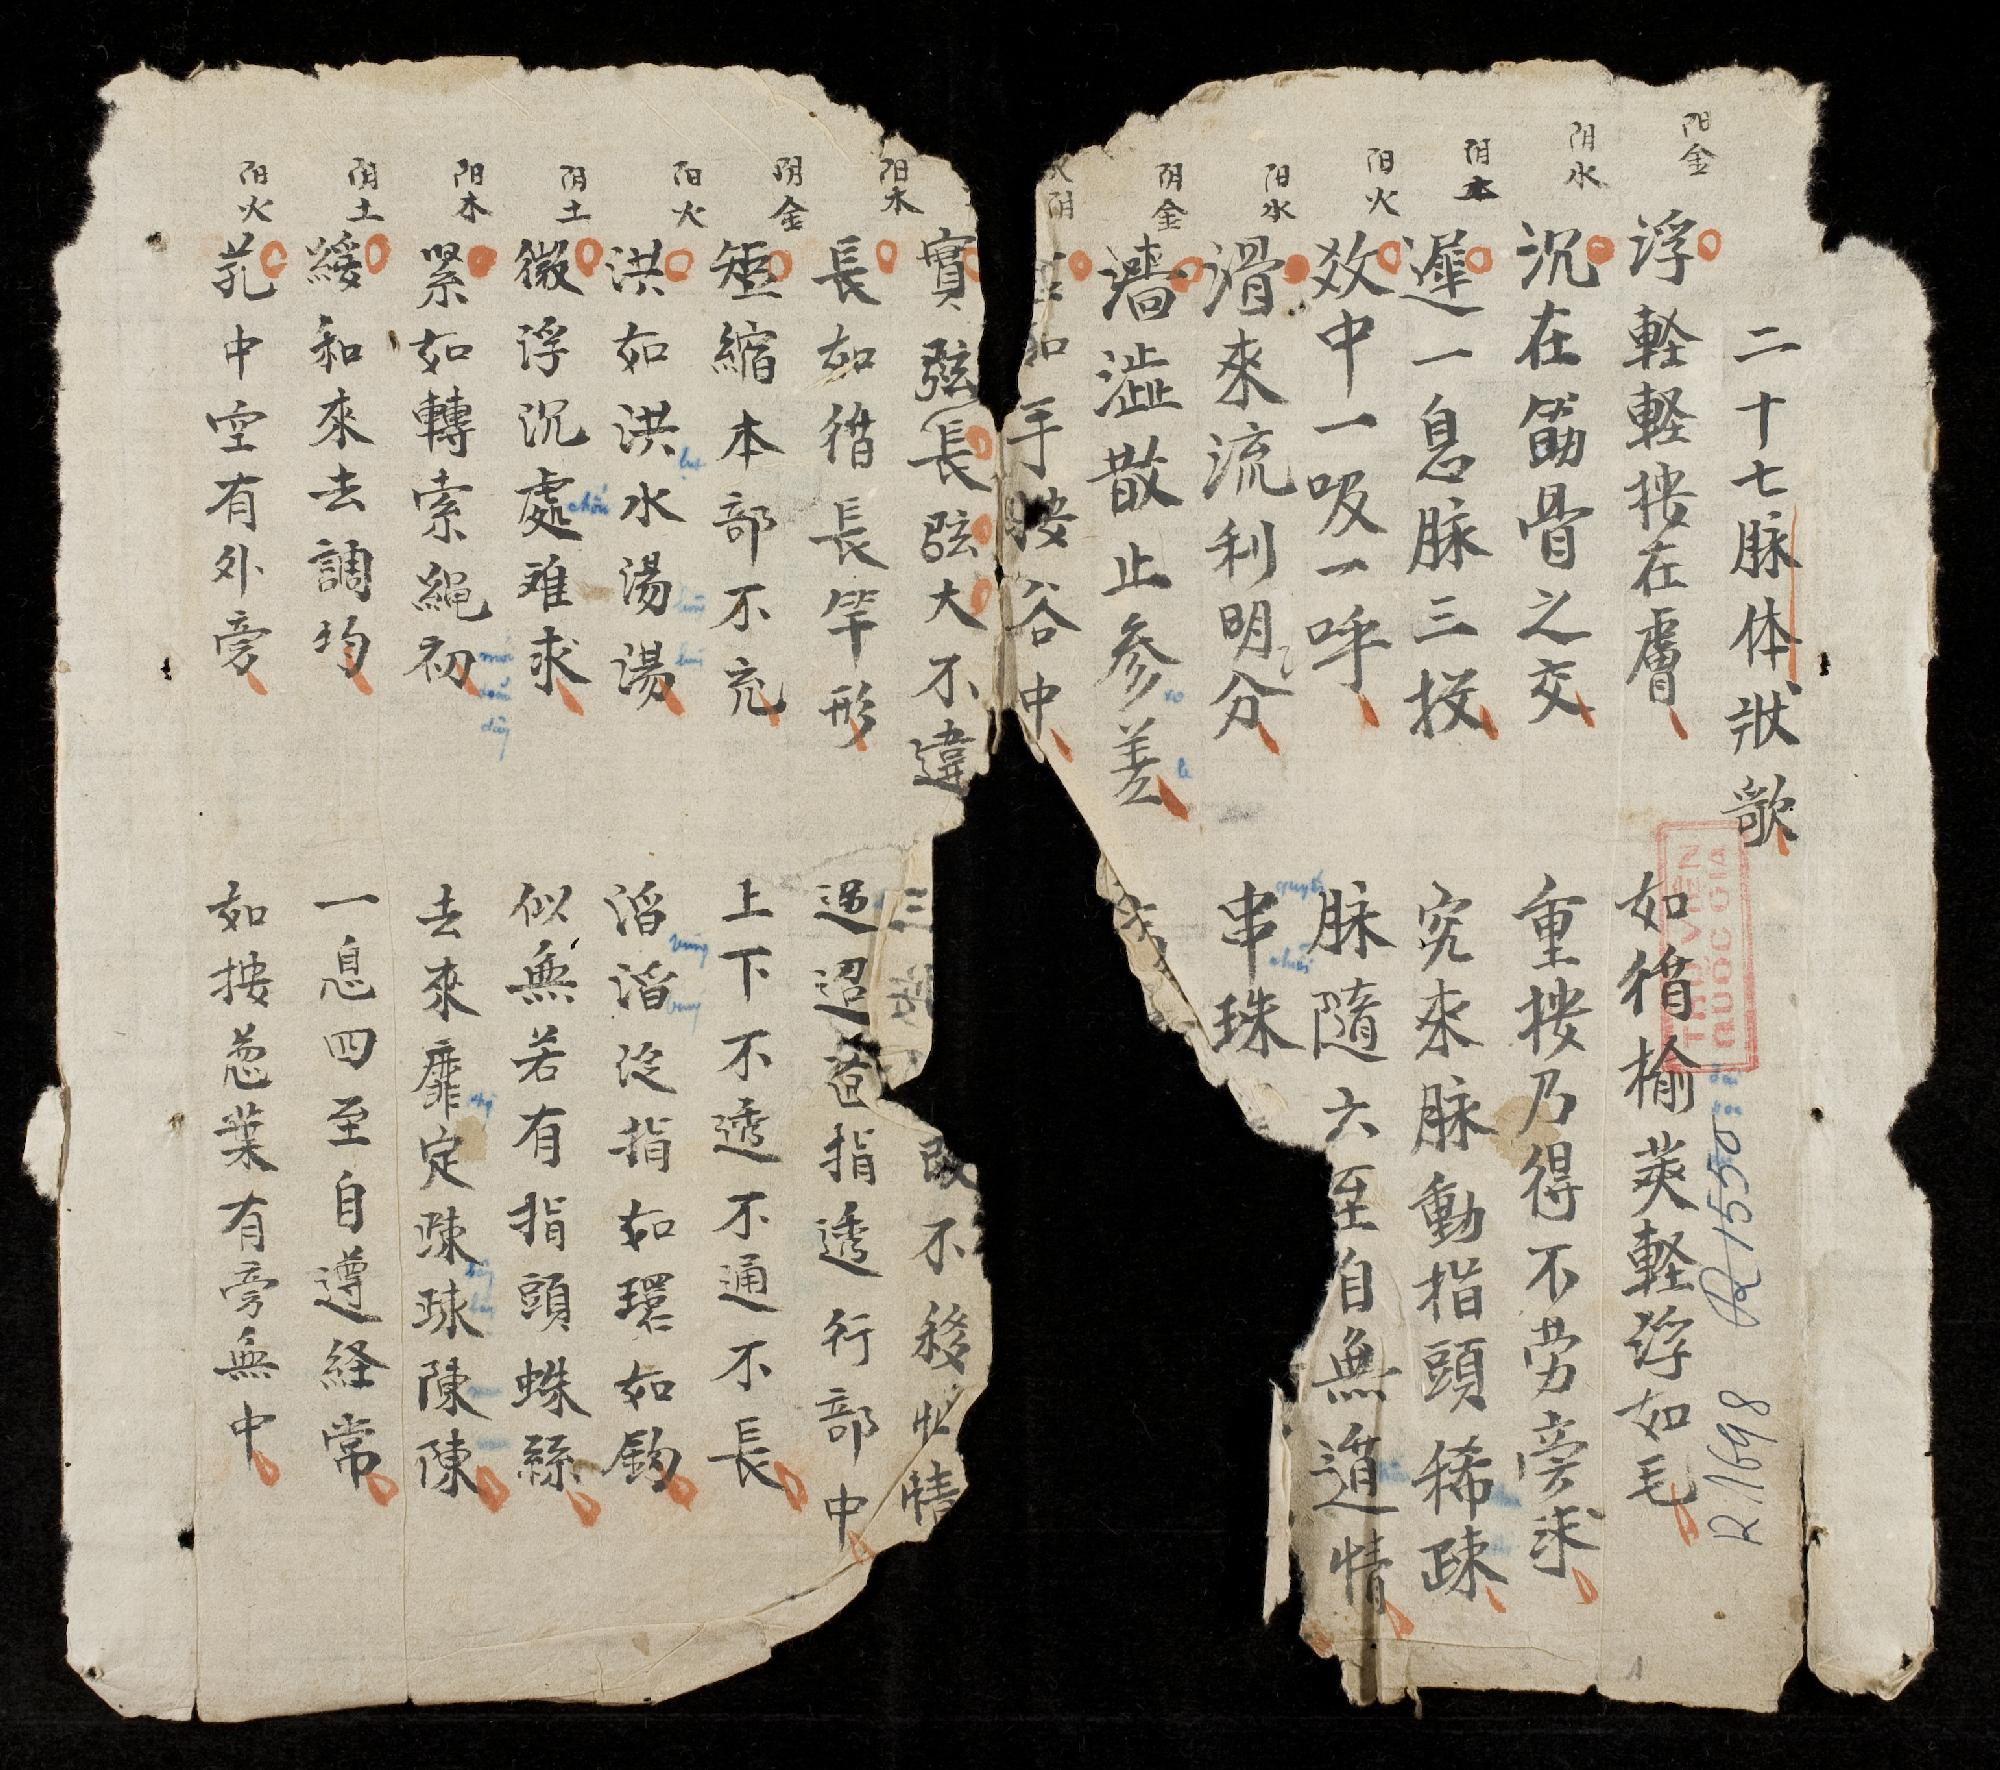 二十七脉体狀歌
阳金
浮軽軽按在膚
如循榆莢軽浮如毛
阴水
沉在筋骨之交
重按乃得不劳旁求
阴木
遲一息脉三投
究來脉動指頭稀疎
阳火
效中一吸一呼
脉隨六至自無遁情
阳水
滑來流利明分
串珠
阴金
濇澁散止参差
阴
手按谷中
實弦長弦大不違
三
改不移情
阳木
長如循長竿形
迢迢指透行部中
阴金
短縮本部不充
上下不透不通不長
阳火
洪如洪水湯湯
滔滔泛指如環如鈎
阴土
微浮沉處难求
似無若有指頭蛛絲
阳木
緊如轉索繩初
去來靡定踈踈陳陳
阴土
緩和來去調均
一息四至自遵経常
阳火
芤中空有外旁
如按葱葉有旁無中
chốn
mới
dây
THƯ VIỆN
QUỐC GIA
R 1550
R.1698
1